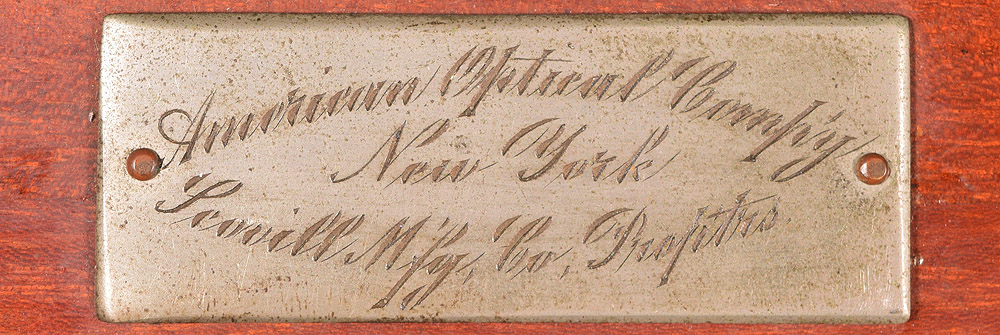 American Optical Comp'y
New York
Scovill M'f'g, Co, Propt'rs.